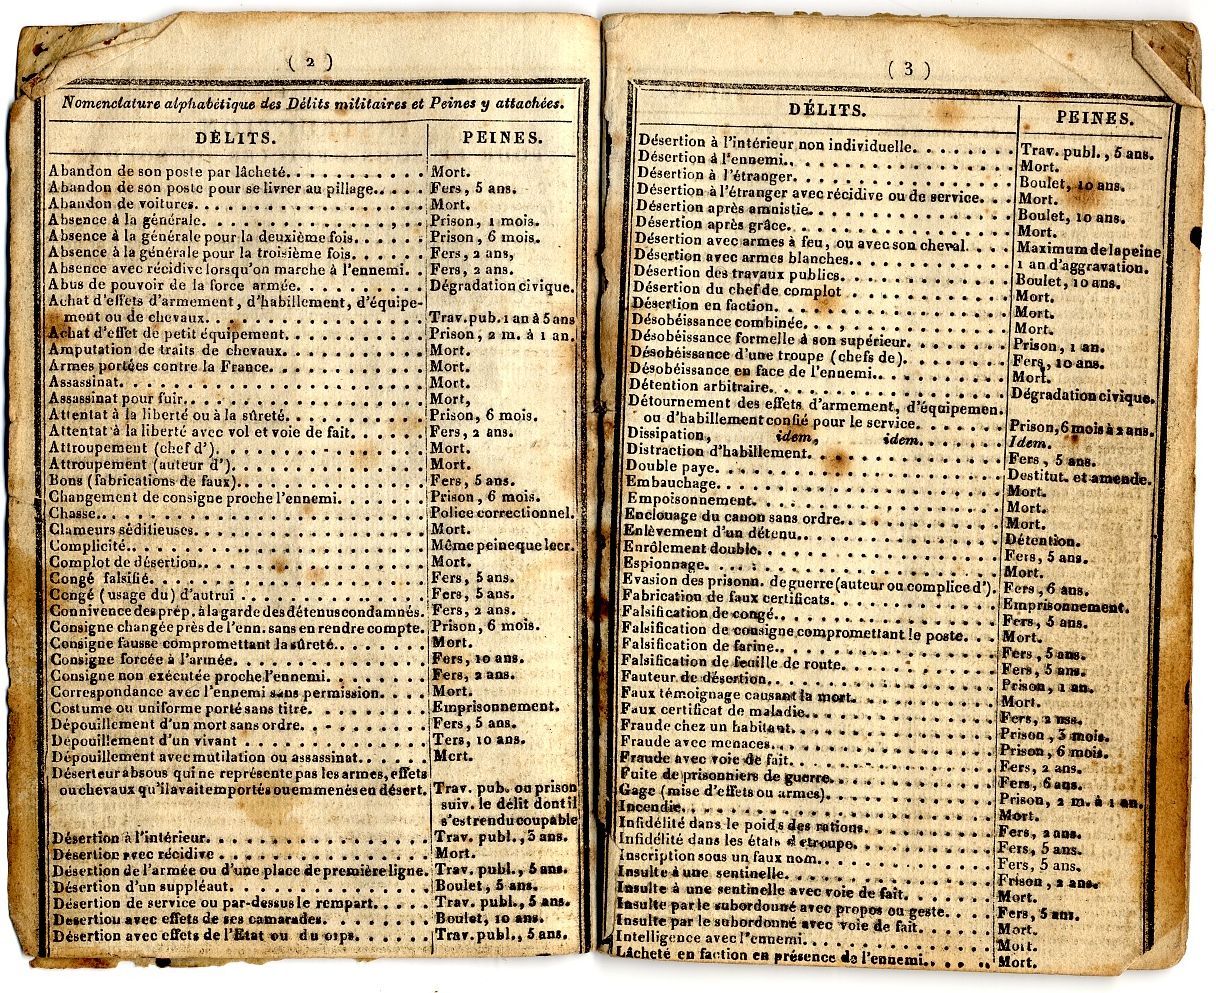 ( 2 )
Nomenclature alphabétique des Délits militaires et Peines y attachées.
DÉLITS. PEINES.
Abandon de son poste par lâcheté. Mort.
Abandon de son poste pour se livrer au pillage. Fers, 5 ans.
Abandon de voitures. Mort.
Absence à la générale. Prison, 1 mois.
Absence à la générale pour la deuxième fois. Prison, 6 mois.
Absence à la générale pour la troisième fois. Fers, 2 ans,
Absence avec récidive lorsqu'on marche à l'ennemi. Fers, 2 ans.
Abus de pouvoir de la force armée. Dégradation civique.
Achat d'effets d'armement, d'habillement, d'équipe-
ment ou de chevaux. Trav. pub. 1 an à 5 ans
Achat d'effet de petit équipement. Prison, 2 m. à 1 an.
Amputation de traits de chevaux. Mort.
Armes portées contre la France. Mort.
Assassinat. Mort.
Assassinat pour fuir. Mort,
Attentat à la liberté ou à la sûreté. Prison, 6 mois.
Attentat à la liberté avec vol et voie de fait. Fers, 2 ans.
Attroupement (chef d'). Mort.
Attroupement (auteur d'). Mort.
Bons (fabrications de faux). Fers, 5 ans.
Changement de consigne proche l'ennemi. Prison, 6 mois.
Chasse. Police correctionnel.
Clameurs séditieuses. Mort.
Complicité. Même peine que leer.
Complot de désertion. Mort.
Congé falsifié. Fers, 5 ans.
Congé (usage du) d'autrui Fers, 5 ans.
Connivence des prép. à la garde des détenus condamnés. Fers, 2 ans.
Consigne changée près de l'enn. sans en rendre compte. Prison, 6 mois.
Consigne fausse compromettant la sûreté. Mort.
Consigne forcée à l'armée. Fers, 10 ans.
Consigne non exécutée proche l'ennemi. Fers, 2 ans.
Correspondance avec l'ennemi sans permission. Mort.
Costume ou uniforme porté sans titre. Emprisonnement.
Dépouillement d'un mort sans ordre. Fers, 5 ans.
Dépouillement d'un vivant Ters, 10 ans.
Dépouillement avec mutilation ou assassinat. Mort.
Déserteur absous qui ne représente pas les armes, effets
ou chevaux qu'il avait emportés ou emmenés en désert. Trav. pub. ou prison
suiv. le délit dont il
s'est rendu coupable
Désertion à l'intérieur. Trav. publ., 3 ans.
Désertion avec récidive Mort.
Désertion de l'armée ou d'une place de première ligne. Trav. publ., 5 ans.
Désertion d'un suppléaut. Boulet, 5 ans.
Désertion de service ou par-dessus le rempart. Trav. publ., 5 ans.
Désertion avec effets de ses camarades. Boulet, 10 ans.
Désertion avec effets de l'Etat ou du orps. Trav. publ., 5 ans.
( 3 )
DÉLITS. PEINES.
Désertion à l'intérieur non individuelle. Trav. publ., 5 ans.
Désertion à l'ennemi. Mort.
Désertion à l'étranger. Boulet, 10 ans.
Désertion à l'étranger avec récidive ou de service. Mort.
Désertion après amnistie. Boulet, 10 ans.
Désertion après grâce. Mort.
Désertion avec armes à feu, ou avec son cheval. Maximum de la peine
Désertion avec armes blanches. 1 an d'aggravation.
Désertion des travaux publics. Boulet, 10 ans.
Désertion du chef de complot Mort.
Désertion en faction. Mort.
Désobéissance combinée. Mort.
Désobéissance formelle à son supérieur. Prison, 1 an.
Désobéissance d'une troupe (chefs de). Fers, 10 ans.
Désobéissance en face de l'ennemi. Mort.
Détention arbitraire. Dégradation civique.
Détournement des effets d'armement, d'équipemen.
ou d'habillement confié pour le service. Prison, 6 mois à 2 ans.
Dissipation, idem, idem. Idem.
Distraction d'habillement. Fers, 5 ans.
Double paye. Destitut. et amende.
Embauchage. Mort.
Empoisonnement. Mort.
Enclouage du canon sans ordre. Mort.
Enlèvement d'un détenu. Détention.
Enrôlement double. Fers, 5 ans.
Espionnage. Mort.
Evasion des prisonn. de guerre (auteur ou complice d'). Fers, 6 ans.
Fabrication de faux certificats. Emprisonnement.
Falsification de congé. Fers, 5 ans.
Falsification de consigne compromettant le poste. Mort.
Falsification de farine. Fers, 5 ans.
Falsification de feuille de route. Fers, 5 ans.
Fauteur de désertion. Prison, 1 an.
Faux témoignage causant la mort. Mort.
Faux certificat de maladie. Fers, 2 ans.
Fraude chez un habitant. Prison, 3 mois.
Fraude avec menaces. Prison, 6 mois.
Fraude avec voie de fait. Fers, 2 ans.
Fuite de prisonniers de guerre. Fers, 6 ans.
Gage (mise d'effets ou armes). Prison, 2 m. à 1 an.
Incendie. Mort.
Infidélité dans le poids des rations. Fers, 2 ans.
Infidélité dans les états d etroupe. Fers, 5 ans.
Inscription sous un faux nom. Fers, 5 ans.
Insulte à une sentinelle. Prison, 2 ans.
Insulte à une sentinelle avec voie de fait. Mort.
Insulte par le subordonné avec propos ou geste. Fers, 5 ans.
Insulte par le subordonné avec voie de fait. Mort.
Intelligence avec l'ennemi. Mort.
Lâcheté en faction en présence de l'ennemi. Mort.